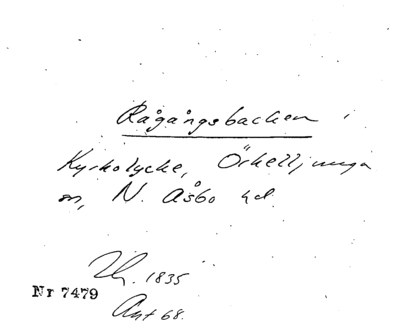 Rågångsbacken
Kyrkolycke, Örkelljunga
sn, N. Åsbo hd.
1835
Nr 7479
Ant 68.